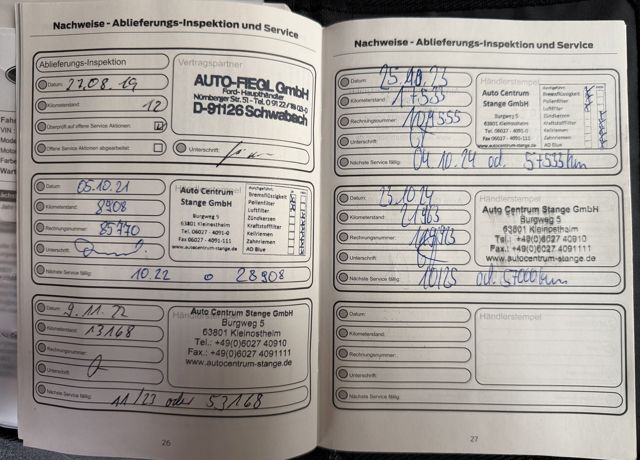 Nachweise - Ablieferungs-Inspektion und Service
Ablieferungs-Inspektion
Datum: 27.08.19
Kilometerstand: 12
Überprüft auf offene Service Aktionen:
Offene Service Aktionen abgearbeitet:
Vertragspartner
AUTO-FIEGL GmbH
Ford-Haupthändler
Nürnberger Str. 51 - Tel. 0 91 22 / 18 03-0
D-91126 Schwabach
Unterschrift:
Datum: 05.10.21
Kilometerstand: 8908
Rechnungsnummer: 85770
Unterschrift:
Auto Centrum
Stange GmbH
Burgweg 5
Tel 06027 - 4091-0
Fax 06027 - 4091-111
www.autocentrum-stange.de
Durchgeführt:
Bremsflüssigkeit
Pollenfilter
Luftfilter
Zündkerzen
Kraftstofffilter
Keilriemen
Zahnriemen
AD Blue
Nächste Service fällig: 10.22 o 28908
Datum: 9.11.22
Kilometerstand: 13168
Rechnungsnummer:
Unterschrift:
Auto Centrum Stange GmbH
Burgweg 5
63801 Kleinostheim
Tel.: +49(0)6027 40910
Fax.: +49(0)6027 4091111
www.autocentrum-stange.de
Nächste Service fällig: 11/23 oder 53168
26
Nachweise - Ablieferungs-Inspektion und Service
Datum: 25.10.23
Kilometerstand: 17535
Rechnungsnummer:
Unterschrift:
Händlerstempel
Auto Centrum
Stange GmbH
Burgweg 5
Tel 06027 - 4091-0
Fax 06027 - 4091-111
www.autocentrum-stange.de
Durchgeführt:
Bremsflüssigkeit
Pollenfilter
Luftfilter
Zündkerzen
Kraftstofffilter
Keilriemen
Zahnriemen
AD Blue
Nächste Service fällig: 04.10.24 od. 57535km
Datum: 23.10.24
Kilometerstand: 21963
Rechnungsnummer:
Unterschrift:
Händlerstempel
Auto Centrum Stange GmbH
Burgweg 5
63801 Kleinostheim
Tel.: +49(0)6027 40910
Fax.: +49(0)6027 4091111
www.autocentrum-stange.de
Nächste Service fällig: 10/25 od. 57000km
Datum:
Kilometerstand:
Rechnungsnummer:
Unterschrift:
Händlerstempel
Nächste Service fällig:
27